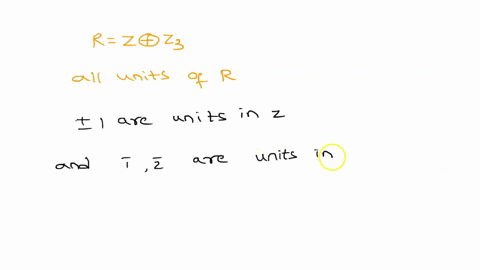 R = Z ⊕ Z₃
all units of R
± 1 are units in z
and 1̄ , 2̄ are units in